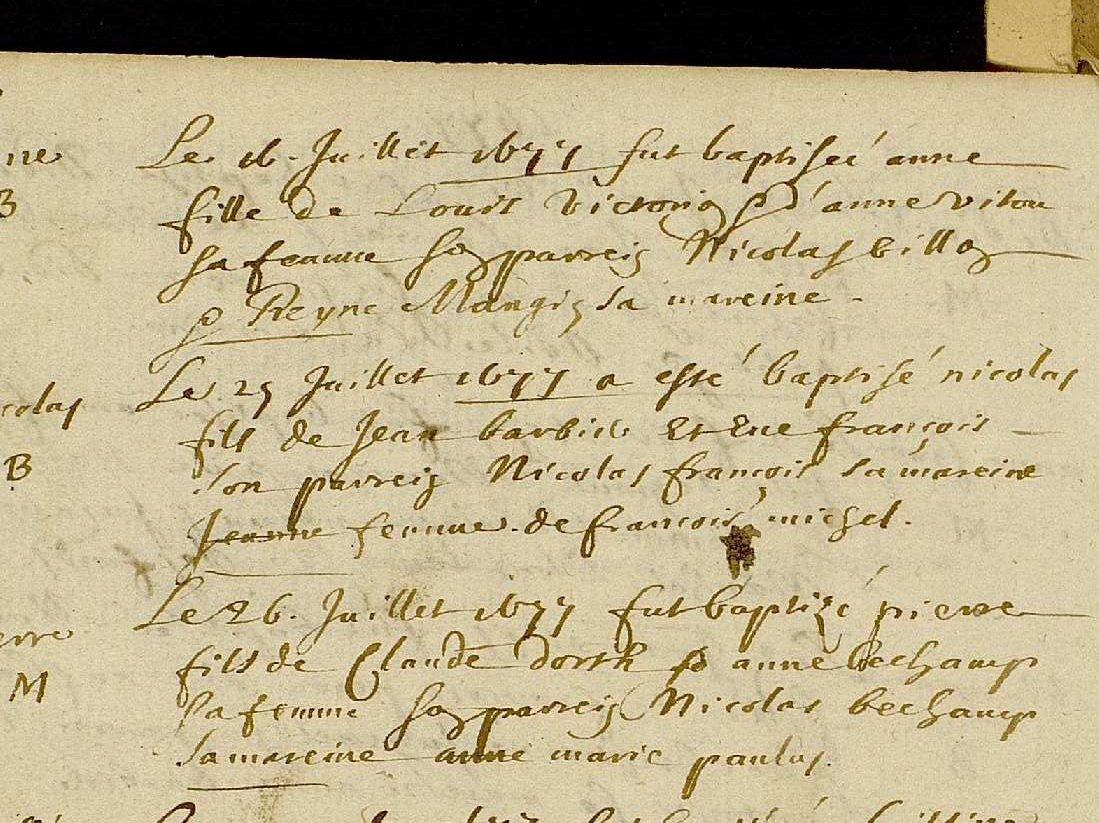 ne
B
Le 16. Juillet 1677 fut baptisée anne
fille de Louis Victorion & d'anne vitou
sa femme son parrein Nicolas billon
& Reyne Mangin sa mareine.
colas
B
Le 25 Juillet 1677 a esté baptisé nicolas
fils de Jean barbier Et Eve françois
son parrein Nicolas françois sa mareine
Jeanne femme de françois michel.
erre
M
Le 26. Juillet 1677 fut baptizé pierre
fils de Claude & anne bechamp
sa femme son parrein Nicolas bechamp
sa mareine anne marie paulus.